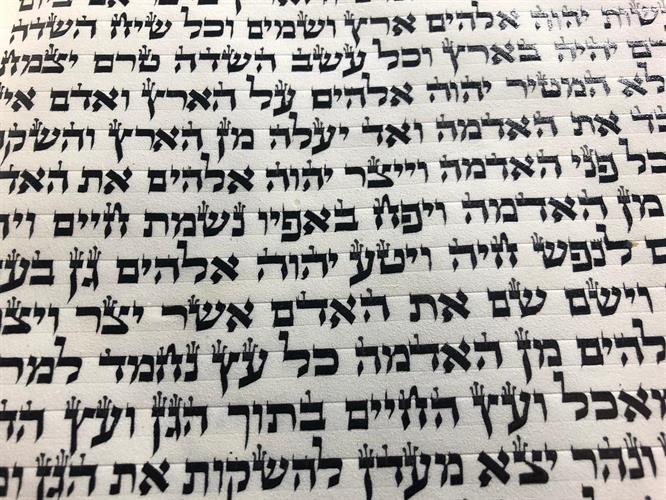 ביום
שות יהוה אלהים ארץ ושמים וכל שיח השדה
רם יהיה בארץ וכל עשב השדה טרם יצמח
לא המטיר יהוה אלהים על הארץ ואדם אי
בד את האדמה ואד יעלה מן הארץ והשק
כל פני האדמה וייצר יהוה אלהים את האד
מן האדמה ויפח באפיו נשמת חיים ויה
ם לנפש חיה ויטע יהוה אלהים גן בעד
וישם שם את האדם אשר יצר ויצמ
להים מן האדמה כל עץ נחמד למר
מאכל ועץ החיים בתוך הגן ועץ הד
ונהר יצא מעדן להשקות את הגן ומ